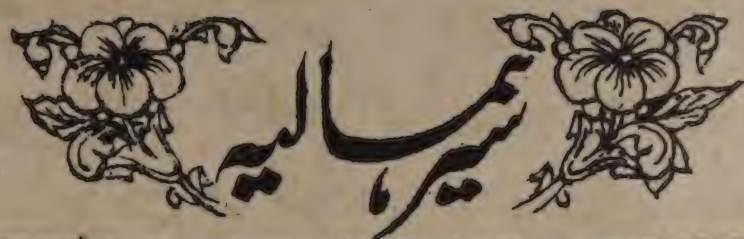 سیر ہمالیہ